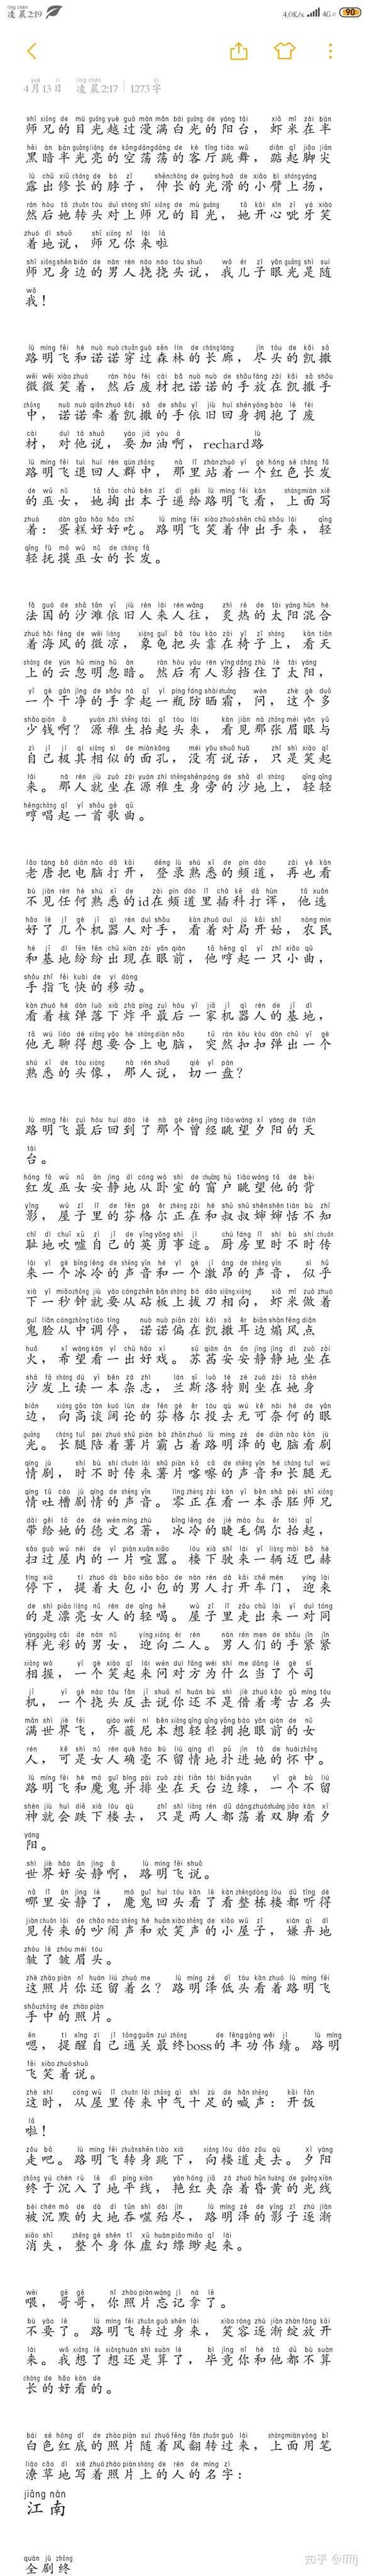 凌晨2:19
4.0K/s 4G 90
4月13日 凌晨2:17 1273字
师兄的目光越过漫满白光的阳台，虾米在半
黑暗半光亮的空荡荡的客厅跳舞，踮起脚尖
露出修长的脖子，伸长的光滑的小臂上扬，
然后她转头对上师兄的目光，她开心呲牙笑
着地说，师兄你来啦
师兄身边的男人挠挠头说，我儿子眼光是随
我！
路明飞和诺诺穿过森林的长廊，尽头的凯撒
微微笑着，然后废材把诺诺的手放在凯撒手
中，诺诺牵着凯撒的手依旧回身拥抱了废
材，对他说，要加油啊，rechard路
路明飞退回人群中，那里站着一个红色长发
的巫女，她掏出本子递给路明飞看，上面写
着：蛋糕好好吃。路明飞笑着伸出手来，轻
轻抚摸巫女的长发。
法国的沙滩依旧人来人往，炙热的太阳混合
着海风的微凉，象龟把头靠在椅子上，看天
上的云忽明忽暗。然后有人影挡住了太阳，
一个干净的手拿起一瓶防晒霜，问，这个多
少钱啊？源稚生抬起头来，看见那张眉眼与
自己极其相似的面孔，没有说话，只是笑起
来。那人就坐在源稚生身旁的沙地上，轻轻
哼唱起一首歌曲。
老唐把电脑打开，登录熟悉的频道，再也看
不见任何熟悉的id在频道里插科打诨，他选
好了几个机器人对手，看着对局开始，农民
和基地纷纷出现在眼前，他哼起一只小曲，
手指飞快的移动。
看着核弹落下炸平最后一家机器人的基地，
他无聊得想要合上电脑，突然扣扣弹出一个
熟悉的头像，那人说，切一盘？
路明飞最后回到了那个曾经眺望夕阳的天
台。
红发巫女安静地从卧室的窗户眺望他的背
影，屋子里的芬格尔正在和叔叔婶婶恬不知
耻地吹嘘自己的英勇事迹。厨房里时不时传
来一个冰冷的声音和一个激昂的声音，似乎
下一秒钟就要从砧板上拔刀相向，虾米做着
鬼脸从中调停，诺诺偏在凯撒耳边煽风点
火，希望看一出好戏。苏茜安安静静地坐在
沙发上读一本杂志，兰斯洛特则坐在她身
边，向高谈阔论的芬格尔投去无可奈何的眼
光。长腿陪着薯片霸占着路明泽的电脑看剧
情剧，时不时传来薯片喀嚓的声音和长腿无
情吐槽剧情的声音。零正在看一本杀胚师兄
带给她的德文名著，冰冷的睫毛偶尔抬起，
扫过屋内的一片喧嚣。楼下驶来一辆迈巴赫
停下，提着大包小包的男人打开车门，迎来
的是漂亮女人的轻喝。屋子里走出来一对同
样光彩的男女，迎向二人。男人们的手紧紧
相握，一个笑起来问对方为什么当了个司
机，一个挠头反击说你还不是借着考古名头
满世界飞，乔薇尼本想轻轻拥抱眼前的女
人，可是女人确毫不留情地扑进她的怀中。
路明飞和魔鬼并排坐在天台边缘，一个不留
神就会跌下楼去，只是两人都荡着双脚看夕
阳。
世界好安静啊，路明飞说。
哪里安静了，魔鬼回头看了看整栋楼都听得
见传来的吵闹声和欢笑声的小屋子，嫌弃地
皱了皱眉头。
这照片你还留着么？路明泽低头看着路明飞
手中的照片。
嗯，提醒自己通关最终boss的丰功伟绩。路明
飞笑着说。
这时，从屋里传来中气十足的喊声：开饭
啦！
走吧。路明飞转身跳下，向楼道走去。夕阳
终于沉入了地平线，艳红夹杂着昏黄的光线
被沉默的大地吞噬殆尽，路明泽的影子逐渐
消失，整个身体虚幻缥缈起来。
喂，哥哥，你照片忘记拿了。
不要了。路明飞转过身来，笑容逐渐绽放开
来。我想了想还是算了，毕竟你和他都不算
长的好看的。
白色红底的照片随着风翻转过来，上面用笔
潦草地写着照片上的人的名字：
江南
全剧终
知乎 @ffffj